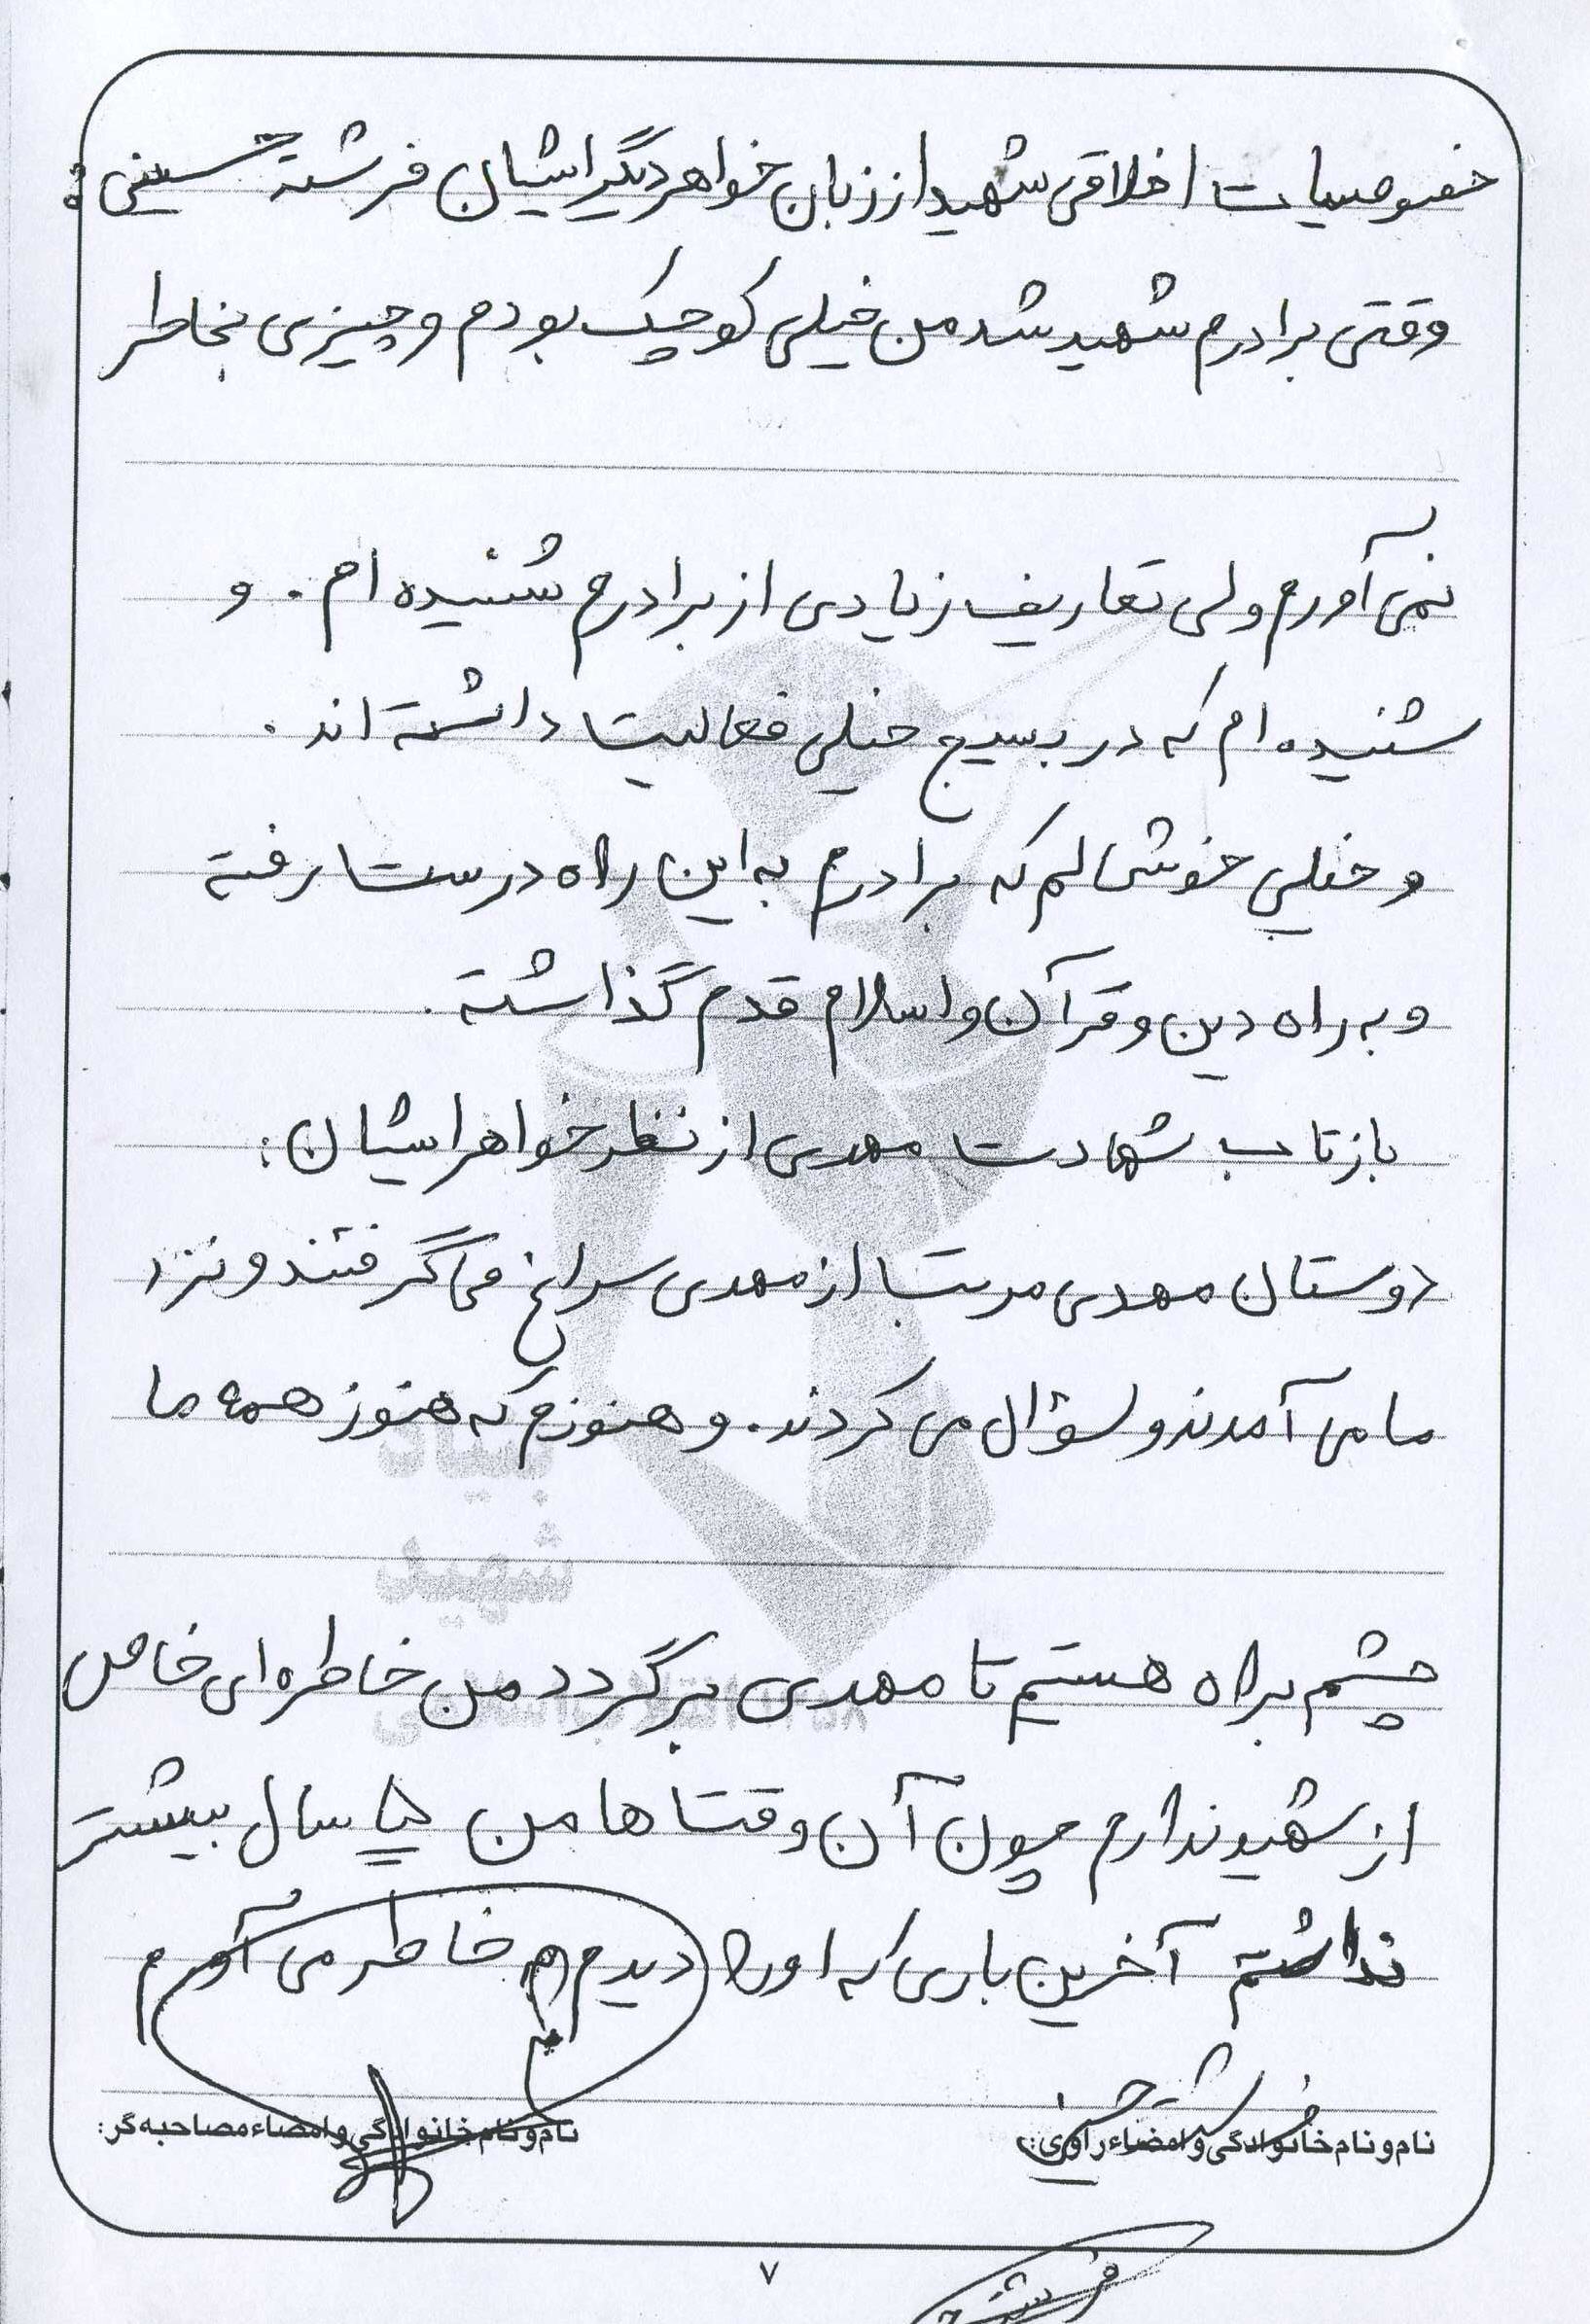 خصوصیات اخلاقی شهید از زبان خواهر دیگر ایشان فرشته حسینی :
وقتی برادرم شهید شد من خیلی کوچک بودم و چیزی بخاطر
نمی آورم ولی تعاریف زیادی از برادرم شنیده ام . و
شنیده ام که در بسیج خیلی فعالیت داشته اند .
و خیلی خوشحالم که برادرم به این راه درست رفته
و به راه دین و قرآن و اسلام قدم گذاشته .
بازتاب شهادت مهدی از نظر خواهر ایشان :
دوستان مهدی مرتب از مهدی سراغ می گرفتند و نزد
ما می آمدند و سؤال می کردند . و هنوزم که هنوز همه ما
بنیاد
شهید
چشم براه هستیم تا مهدی برگردد من خاطره ای خاص
انقلاب اسلامی
از شهید ندارم چون آن وقت ها من ۵ سال بیشتر
نداشتم آخرین باری که او را دیدم خاطر می آورم
فرشته حسینی
نام و نام خانوادگی و امضاء راوی:
نام و نام خانوادگی و امضاء مصاحبه گر:
۷
فرشته